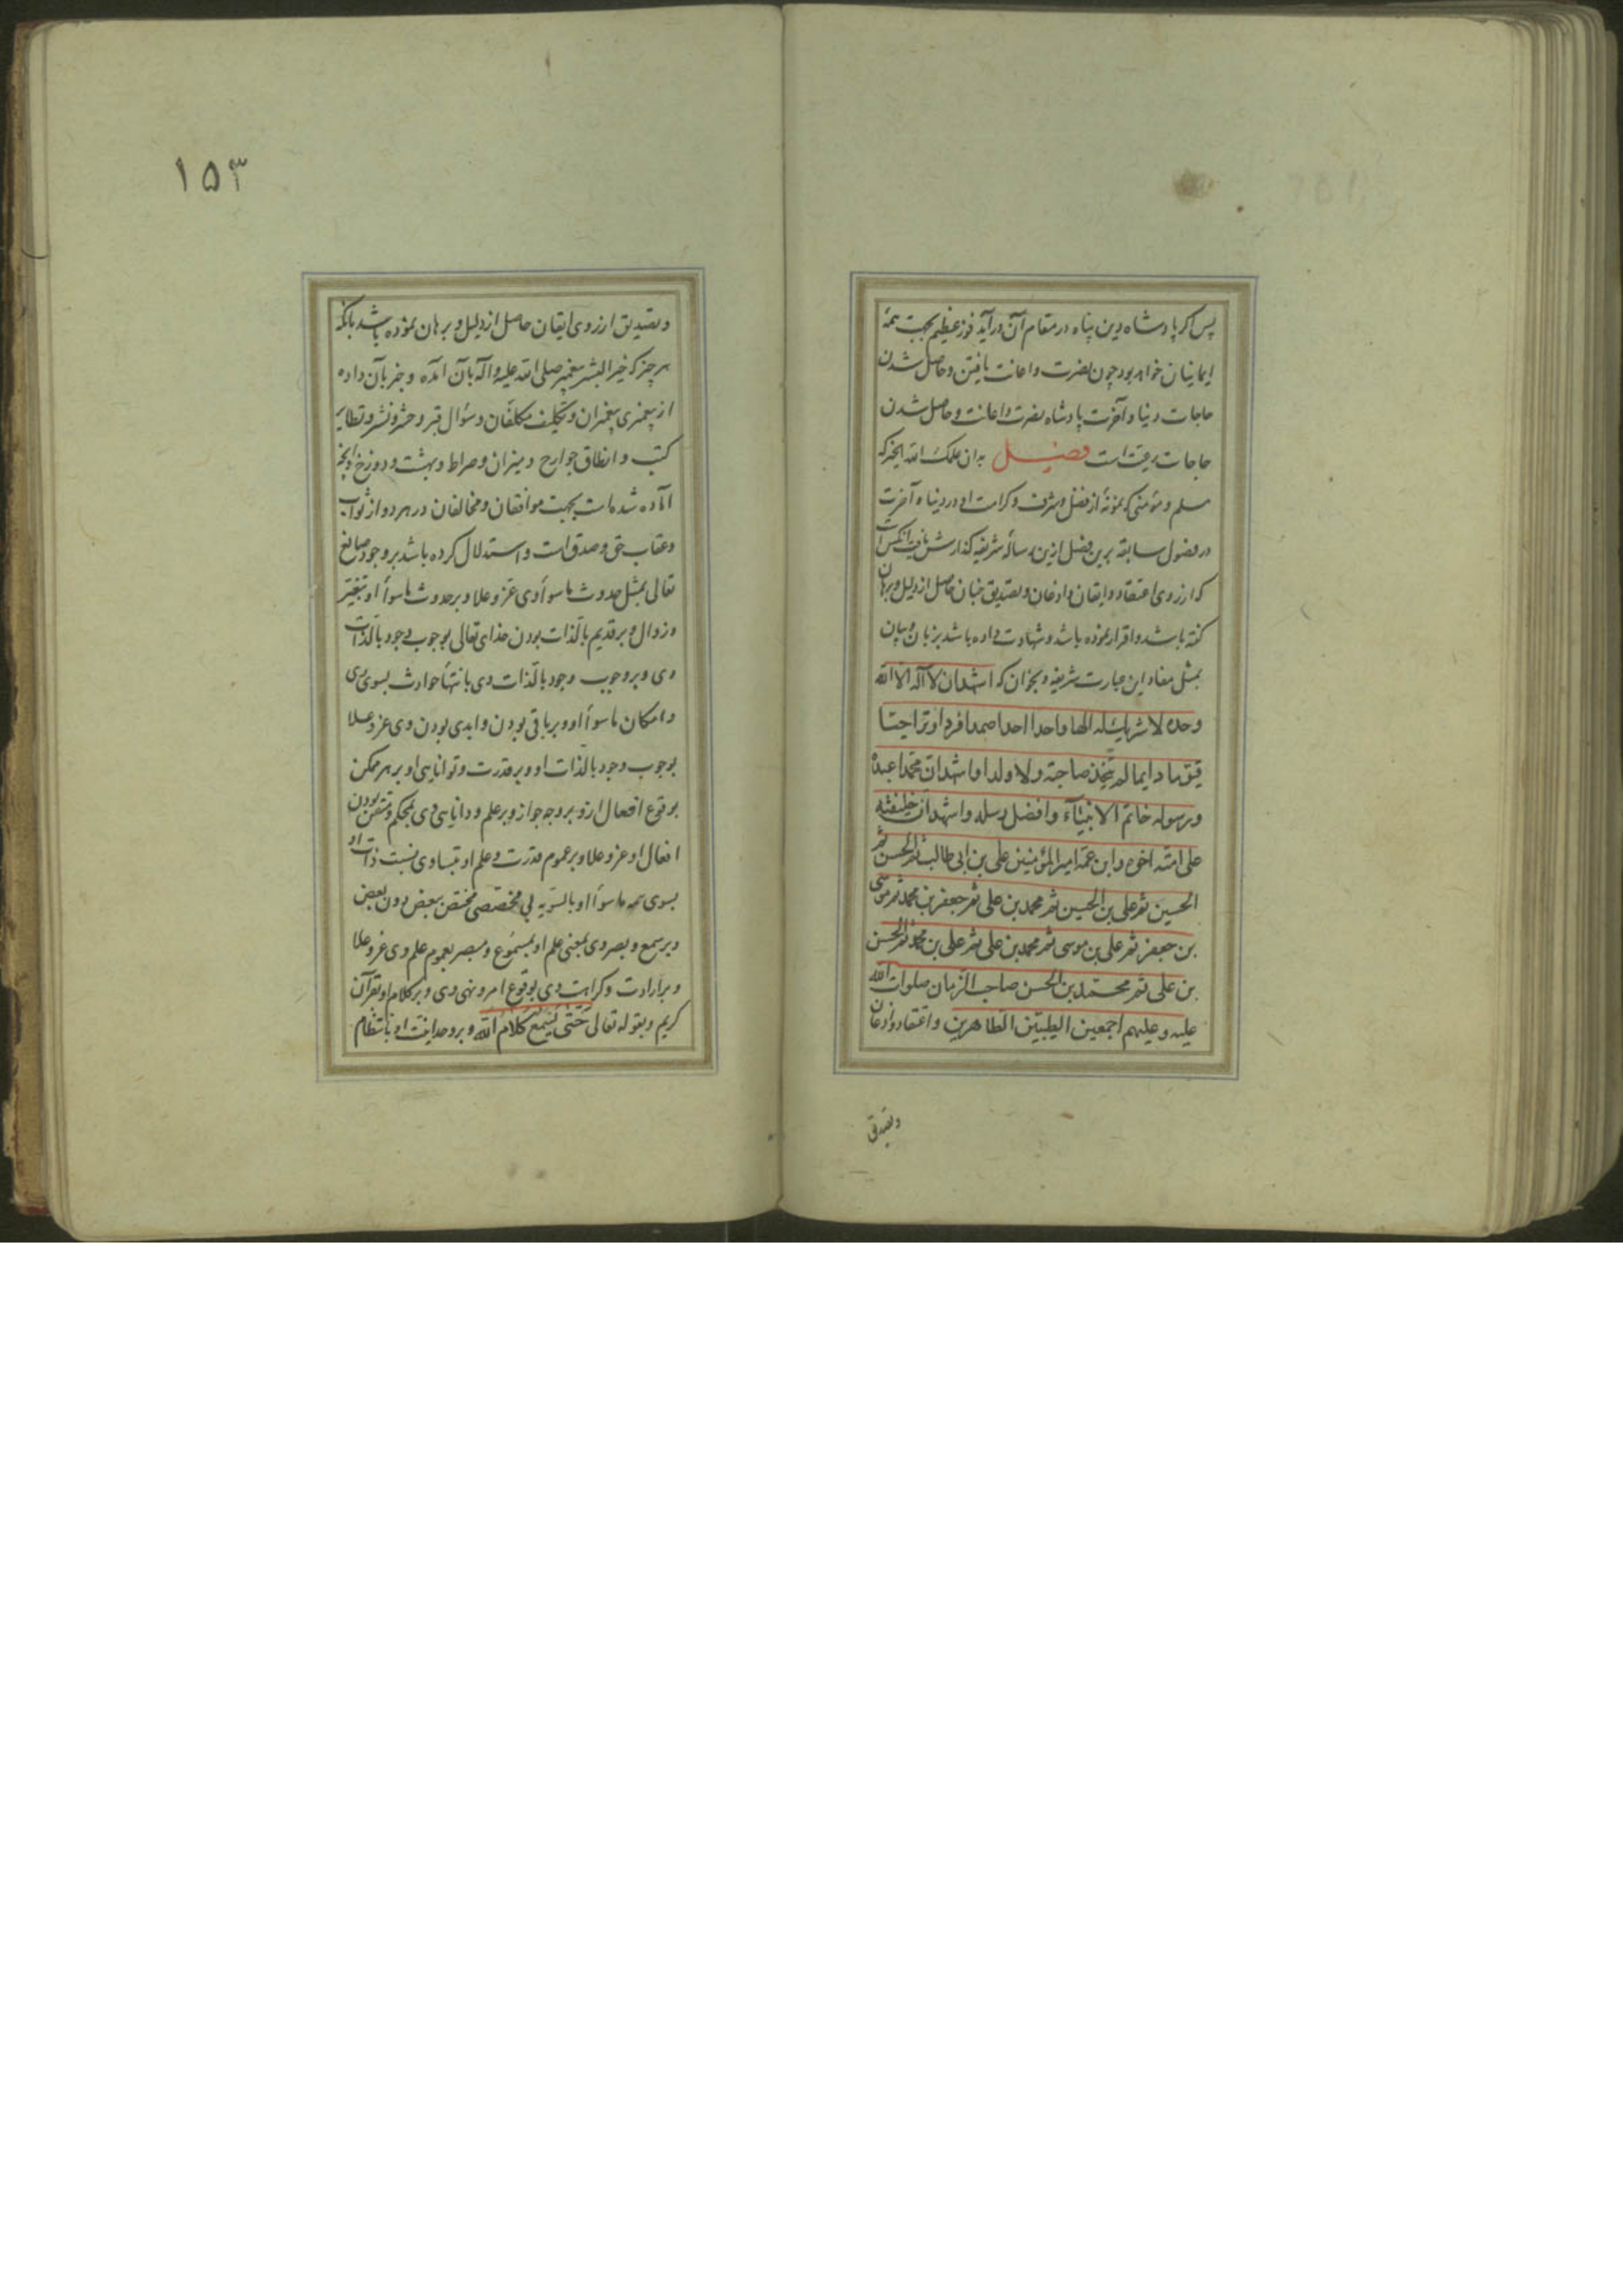 پس اگر پادشاه دین پناه در مقام آن درآید فوز عظیم بجهت همهٔ
ایمانیان خواهد بود چون نصرت و اعانت یافتن و حاصل شدن
حاجات دنیا و آخرت پادشاه نصرت و اعانت و حاصل شدن
حاجات رعیت است فصل بدان علمک الله الخیر که
مسلم و مؤمنی که نمونهٔ از فضل و شرف و کرامت او در دنیا و آخرت
در فصول سابقه برین فصل ازین رسالهٔ شریفه گذارش یافت آنکس است
که از روی اعتقاد و ایقان و اذعان و تصدیق جنان حاصل از دلیل و برهان
گفته باشد و اقرار نموده باشد و شهادت داده باشد بزبان و بیان
بمثل مفاد این عبارت شریفه و بخوان که اشهد ان لا آله الا الله
وحده لا شریک له الها واحدا احدا صمدا فردا وترا حیا
قیوما دایما لم یتخذ صاحبة ولا ولدا واشهد ان محمدا عبده
ورسوله خاتم الانبیآء وافضل رسله واشهد ان خلیفته
علی امته اخوه وابن عمه امیر المؤمنین علی بن ابی طالب ثم الحسن ثم
الحسین ثم علی بن الحسین ثم محمد بن علی ثم جعفر بن محمد ثم موسی
بن جعفر ثم علی بن موسی ثم محمد بن علی ثم علی بن محمد ثم الحسن
بن علی ثم محمد بن الحسن صاحب الزمان صلوات الله
علیه وعلیهم اجمعین الطیبین الطاهرین و اعتقاد و اذعان
وتصدیق
۱۵۳
و تصدیق از روی ایقان حاصل از دلیل و برهان نموده باشد بآنکه
هر چیز که خیر البشر پیغمبر صلی الله علیه و اله بآن آمده و خبر بآن داده
از پیغمبری پیغمبران و تکلیف مکلفان و سؤال قبر و حشر و نشر و تطایر
کتب و انطاق جوارح و میزان و صراط و بهشت و دوزخ و آنچه
آماده شده است بجهت موافقان و مخالفان در هر دو از ثواب
و عقاب حق و صدق است و استدلال کرده باشد بر وجود صانع
تعالی بمثل حدوث ماسوأ وی عز و علا و بر حدوث ماسوأ او بتغیر
و زوال و بر قدیم بالذات بودن خدای تعالی بوجوب وجود بالذات
وی و بر وجوب وجود بالذات وی بانتهأ حوادث بسوی وی
و امکان ماسوأ او و بر باقی بودن و ابدی بودن وی عز و علا
بوجوب وجود بالذات او و بر قدرت و توانایی او بر هر ممکن
بوقوع افعال ازو بر وجه جواز و بر علم و دانایی وی بمحکم و متقن بودن
افعال او عز و علا و بر عموم قدرت و علم او بتساوی نسبت ذات او
بسوی همه ماسوأ او بالسویه بی مخصصی مختص ببعض دون بعض
و بر سمع و بصر وی بمعنی علم او بمسموع و مبصر بعموم علم وی عز و علا
و بر ارادت و کراهت وی بوقوع امر و نهی وی و بر کلام او بقرآن
کریم و بقوله تعالی حَتّٰی یَسْمَعَ کَلَامَ الله و بر وحدانیت او بانتظام